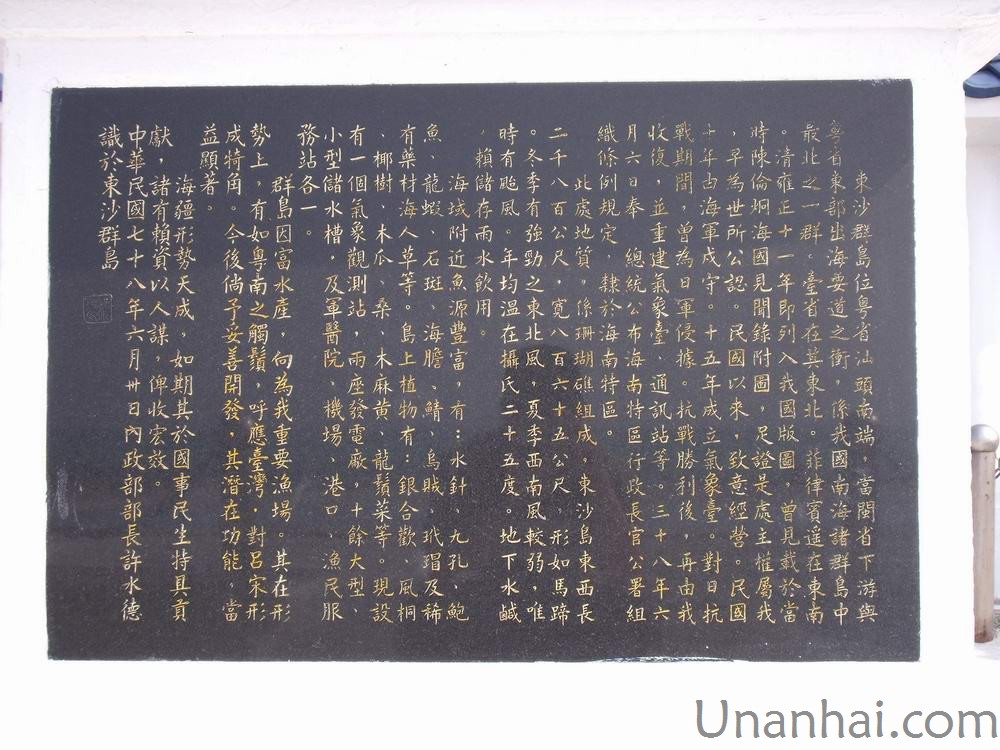 東沙群島位粵省汕頭南端，當閩省下游與
粵省東部出海要道之衝，係我國南海諸群島中
最北之一群。臺省在其東北。菲律賓遥在東南
。清雍正十一年即列入我國版圖，曾見載於當
時陳倫炯海國見聞錄附圖，足證是處主權屬我
，早為世所公認。民國以來，致意經營。民國
十年占海軍戍守。十五年成立氣象臺。對日抗
戰期間，曾為日軍侵據。抗戰勝利後，再由我
收復，並重建氣象臺、通訊站等。三十八年六
月六日奉　總統公布海南特區行政長官公署組
織條例規定，隸於海南特區。
此處地質，係珊瑚礁組成，東沙島東西長
二千八百公尺，寬八百六十五公尺，形如馬蹄
。冬季有強勁之東北風，夏季西南風較弱，唯
時有颱風。年均温在攝氏二十五度。地下水鹹
，賴儲存雨水飲用。
海域附近魚源豐富，有：水針、九孔、鮑
魚、龍蝦、石斑、海膽、鯖、烏賊、玳瑁及稀
有藥材海人草等。島上植物有：銀合歡、風桐
、椰樹、木瓜、桑、木麻黄、龍鬚菜等。現設
有一個氣象觀測站，兩座發電廠，十餘大型、
小型儲水槽，及軍醫院、機場、港口、漁民服
務站各一。
群島因富水產，向為我重要漁場。其在形
勢上，有如粵南之觸鬚，呼應臺灣，對呂宋形
成犄角。今後倘予妥善開發，其潛在功能，當
益顯著。
海疆形勢天成，如期其於國事民生特具貢
獻，諸有賴資以人謀，俾收宏效。
中華民國七十八年六月卅日內政部部長許水德
識於東沙群島
Unanhai.com